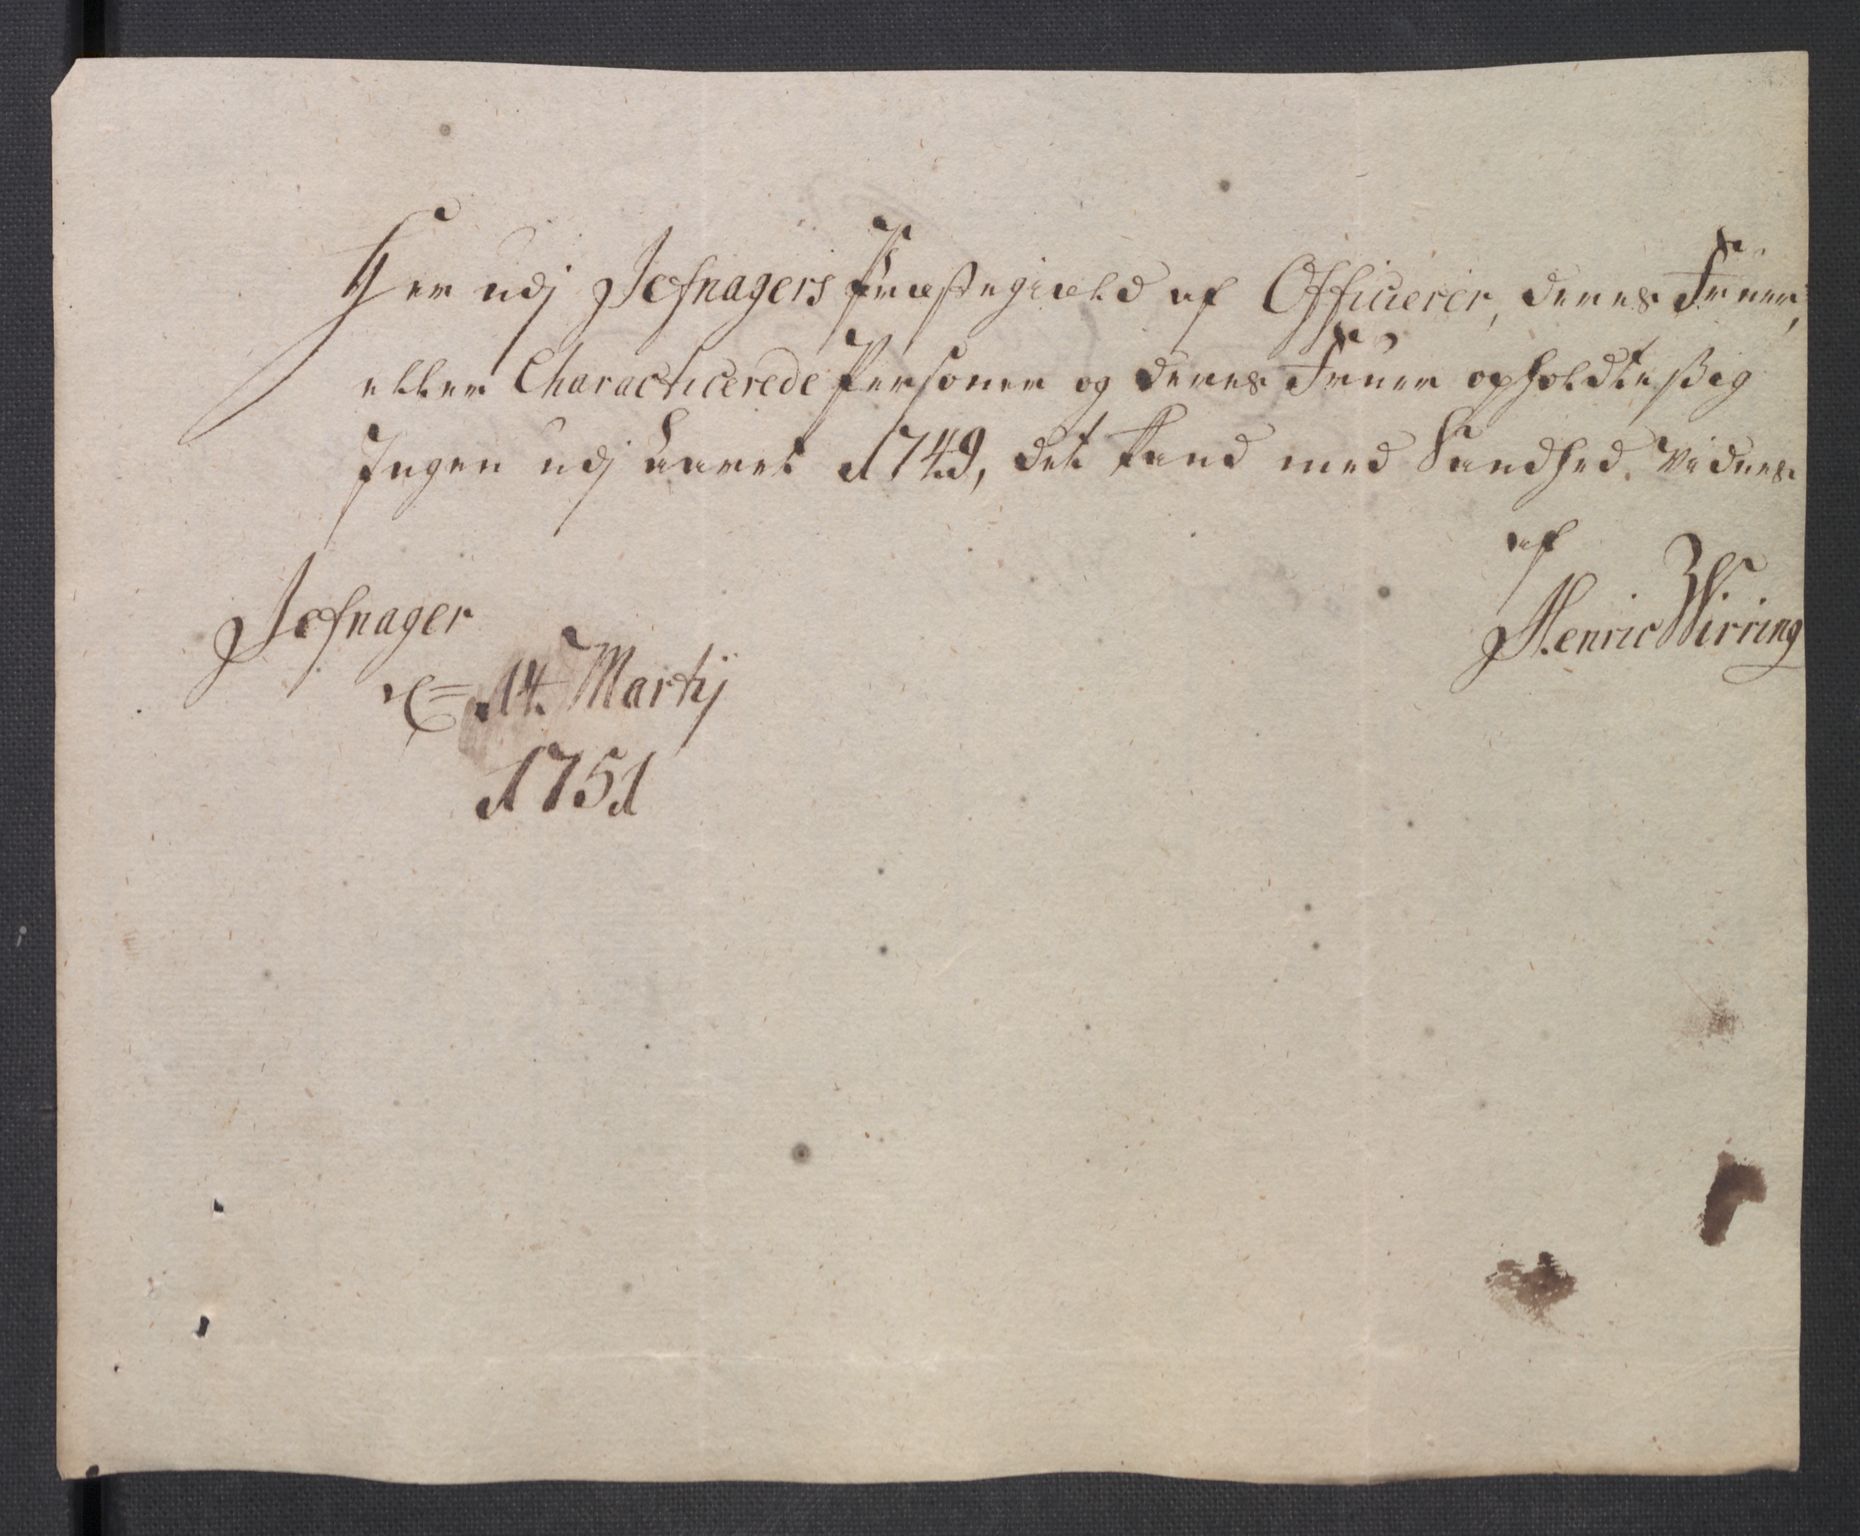 Her udj Jefnagers Præstegield af Officierer, deres Fruer,
eller Characticerede Personer og deres Fruer opholdte ßig
Ingen udj Aaret 1749, det kand med Sandhed Vidnes
af
Henric Wirring
Jefnager
d= 14. Martij
1751